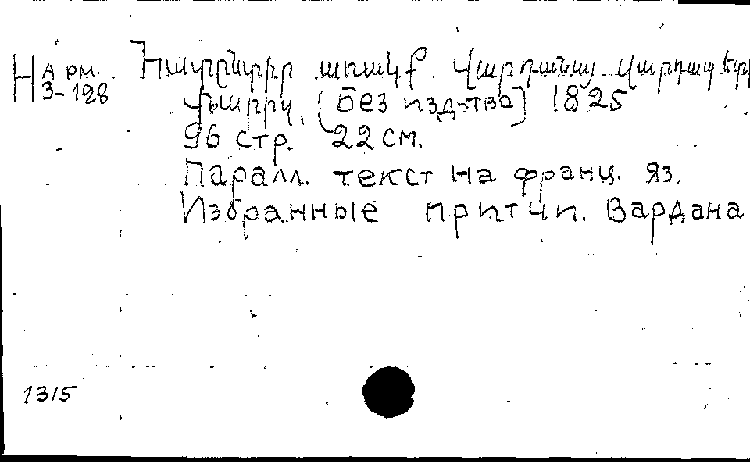 НАрм. Ընտրնտիր առակք Վարդանայ Վարդապետի
3-128 Փարիզ [Без изд-тва] 1825
96 стр. 22 см.
Паралл. текст на франц. яз.
Избранные притчи. Вардана
1315